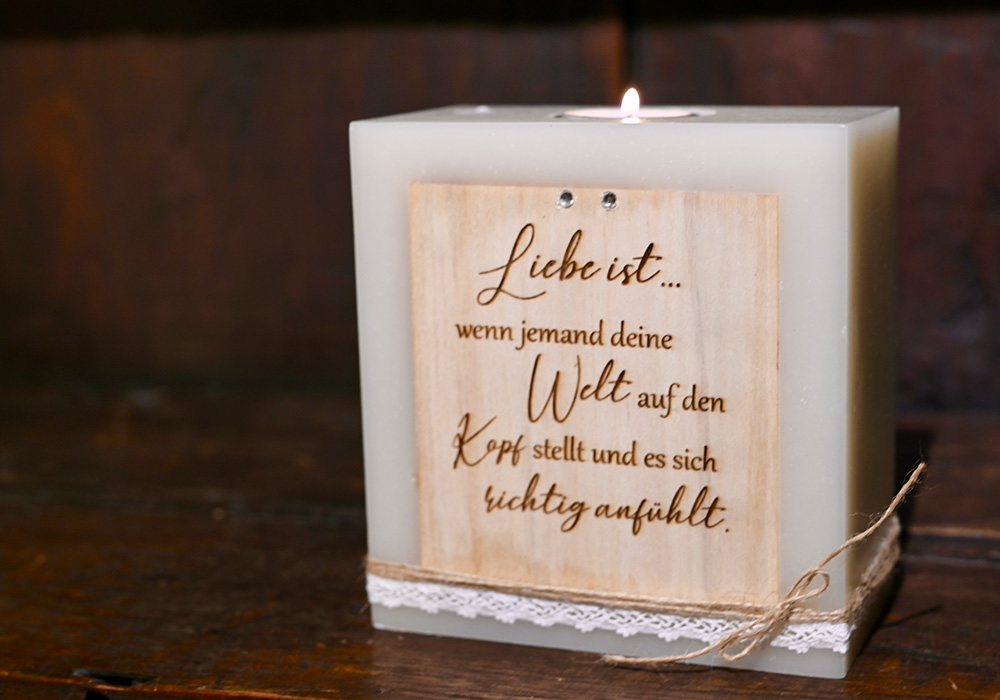 Liebe ist...
wenn jemand deine
Welt auf den
Kopf stellt und es sich
richtig anfühlt.